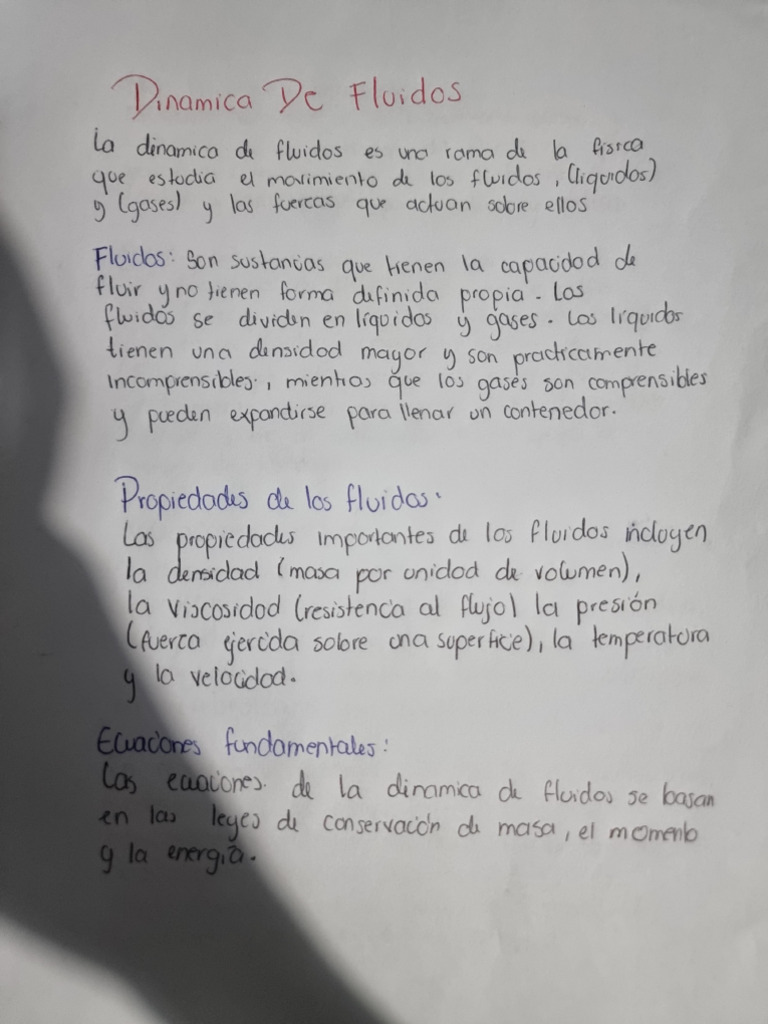 Dinamica De Fluidos
La dinamica de fluidos es una rama de la fisica
que estudia el movimiento de los fluidos, (liquidos)
y (gases) y las fuercas que actuan sobre ellos
Fluidos: Son sustancias que tienen la capacidad de
fluir y no tienen forma definida propia. Los
fluidos se dividen en líquidos y gases. Los líquidos
tienen una densidad mayor y son practicamente
incomprensibles, mientras que los gases son comprensibles
y pueden expandirse para llenar un contenedor.
Propiedades de los fluidos:
Las propiedades importantes de los fluidos incluyen
la densidad (masa por unidad de volumen),
la viscosidad (resistencia al flujo) la presión
(fuerca ejercida sobre una superficie), la temperatura
y la velocidad.
Ecuaciones fundamentales:
Las ecuaciones de la dinamica de fluidos se basan
en las leyes de conservación de masa, el momento
y la energía.